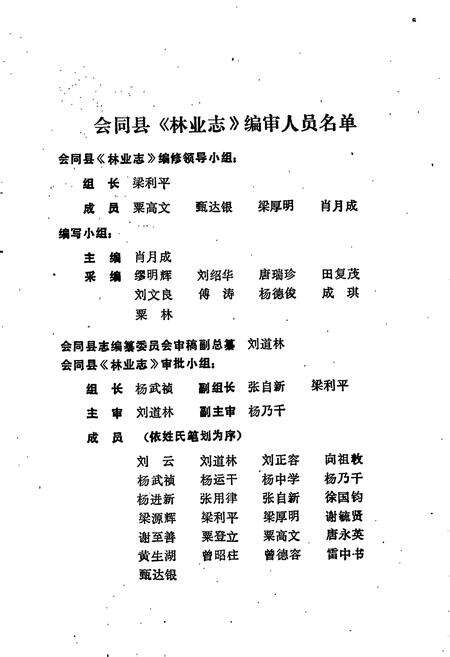 会同县《林业志》编审人员名单
会同县《林业志》编修领导小组：
组 长 梁利平
成 员 粟高文 甄达银 梁厚明 肖月成
编写小组：
主 编 肖月成
采 编 缪明辉 刘绍华 唐瑞珍 田复茂
刘文良 傅 涛 杨德俊 成 琪
粟 林
会同县志编纂委员会审稿副总纂 刘道林
会同县《林业志》审批小组：
组 长 杨武祯 副组长 张自新 梁利平
主 审 刘道林 副主审 杨乃千
成 员 （依姓氏笔划为序）
刘 云 刘道林 刘正容 向祖敕
杨武祯 杨运干 杨中学 杨乃千
杨进新 张用律 张自新 徐国钧
梁源辉 梁利平 梁厚明 谢毓贤
谢至善 粟登立 粟高文 唐永英
黄生湖 曾昭住 曾德容 雷中书
甄达银